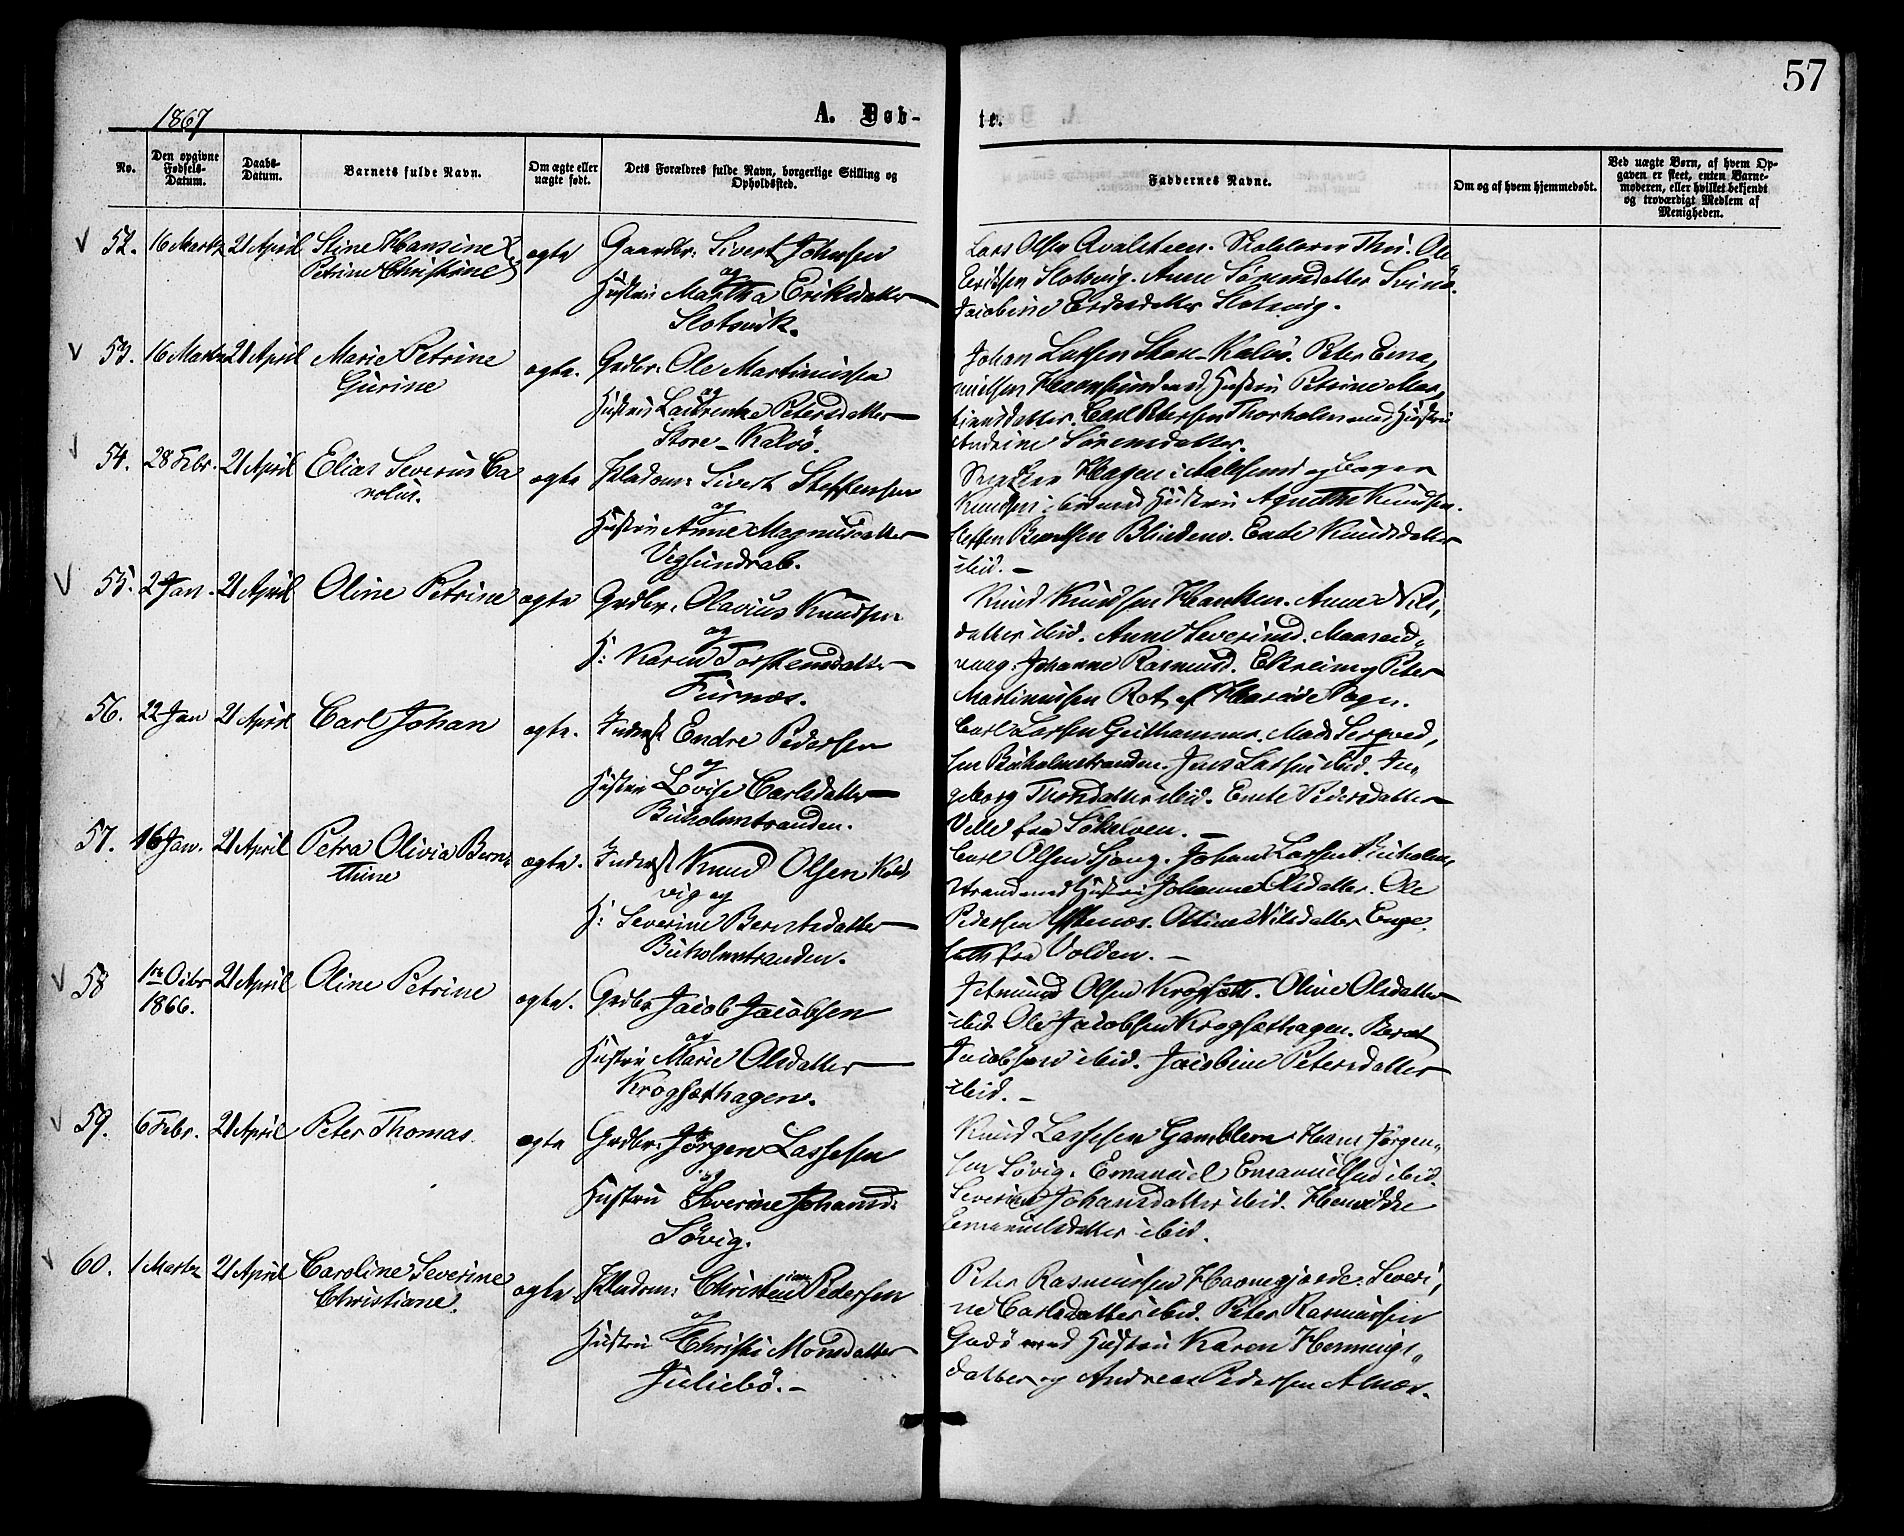 57
1867
A. Døb-
te.
No.
Den opgivne Fødsels-Datum.
Daabs-Datum.
Barnets fulde Navn.
Om ægte eller uægte født.
Dets Forældres fulde Navn, borgerlige Stilling og Opholdssted.
Faddernes Navne.
Om og af hvem hjemmedøbt.
Ved uægte Børn, af hvem Op-
gaven er skeet, enten Barne-
moderen, eller hvilket bekjendt
og troværdigt Medlem af
Menigheden.
52. 16 Marts 21 April Stine Hansine ægte Gaardbr: Sivert Johnsen
Petrine Christine
og
Hustru Martha Eriksdatter
Slotsvik.
Lars Olsen Ole
Eriksen Slotsvig. Anne Sørensdatter Svinø.
Jacobine Slotsvig.
53. 16 Marts 21 April Marie Petrine ægte. Grdbr: Ole Martinussen
Gurine
og
Hustru Laurentse Petersdatter
Store-Kalvø.
Johan Larsen Store-Kalvø. Peter Ema,
nuelsen med Hustru Petrine Mar,
tinusdatter. Carl Petersen med Hustru
Sørensdatter.
54. 28 Febr. 21 April Elias Severus Ca ægte Sivert Steffensen
rolus.
og
Hustru Anne Magnusdatter
Vegsundrab.
Hagen i Aalesund og
Knudsen med Hustru Agnethe Knudsen.
Steffen Blindem. Knudsdatter
ibid.
55. 2 Jan. 21 April Oline Petrine ægte Grdbr: Olavius Knudsen
og
H: Karen Torstensdatter
Furnæs.
Knud Knudsen Hanken. Anne Nils,
datter ibid. Anne Severinsd.
Johanne Rasmusd. Ekrem og Peter
Martinussen af
56. 22 Jan 21 April Carl Johan ægte. Inderst Endre Pedersen
og
Hustru Lovise Carlsdatter
Buholmstranden.
Carl Larsen Mads
sen Buholmstranden. Jens Larsen ibid. In,
geborg ibid. Pedersdatter
Velle fra Søkelven.
57. 16 Jan. 21 April Petra Olivia Bern, ægte. Inderst Knud Olsen
thine
vig og
H: Severine Berntsdatter
Buholmstranden.
Carl Olsen Johan Larsen Buholm,
strand med Hustru Johanne Olsdatter. Ole
Pedersen Ystenæs. Nilsdatter
fra Volden.
58 21 April Oline Petrine ægte. Grdbr Jacob Jacobsen
1866.
og
Hustru Marie Olsdatter
Krogsæthagen.
Jetmund Olsen Krogsæt. Oline Olsdatter
ibid. Ole Jacobsen Krogsæthagen. Bernt
Jacobsen ibid. Jacobine Petersdatter
ibid.
59. 6 Febr. 21 April Peter Thomas ægte Grdbr: Jørgen Lassesen
og
Hustru Severine Johansd:
Søvig.
Knud Lassesen Gamblem. Hans Jørgen,
sen Søvig. Emanuel Emanuelsen ibid.
Severine Johansdatter ibid.
Emanuelsdatter ibid.
60. 1 Marts 21 April Caroline Severine ægte. Christian Pedersen
Christiane.
og
Hustru Christi Monsdatter
Juliebø.
Peter Rasmussen Severi,
ne Carlsdatter ibid. Peter Rasmussen
Godø med Hustru Karen Hennings,
datter og Andreas Pedersen Alnæs.